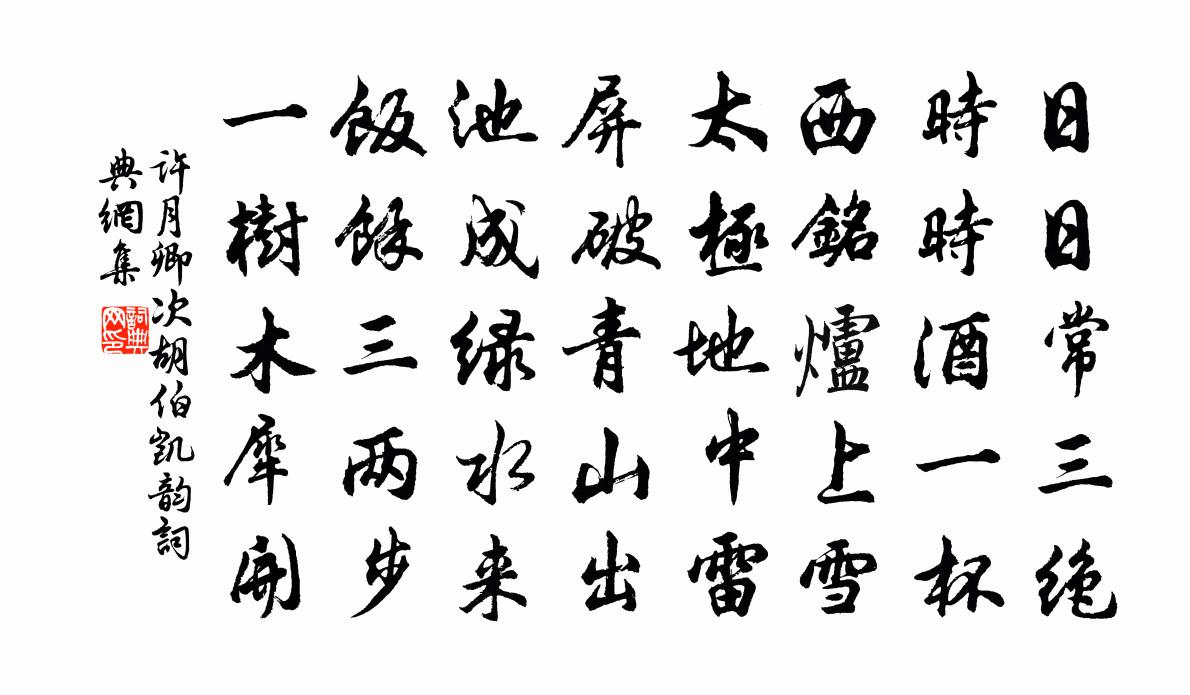 日日常三绝
時時酒一杯
西銘爐上雪
太極地中雷
屏破青山出
池成绿水来
飯餘三两步
一樹木犀開
許月卿次胡伯凱韵詞
典網集
詞典网印